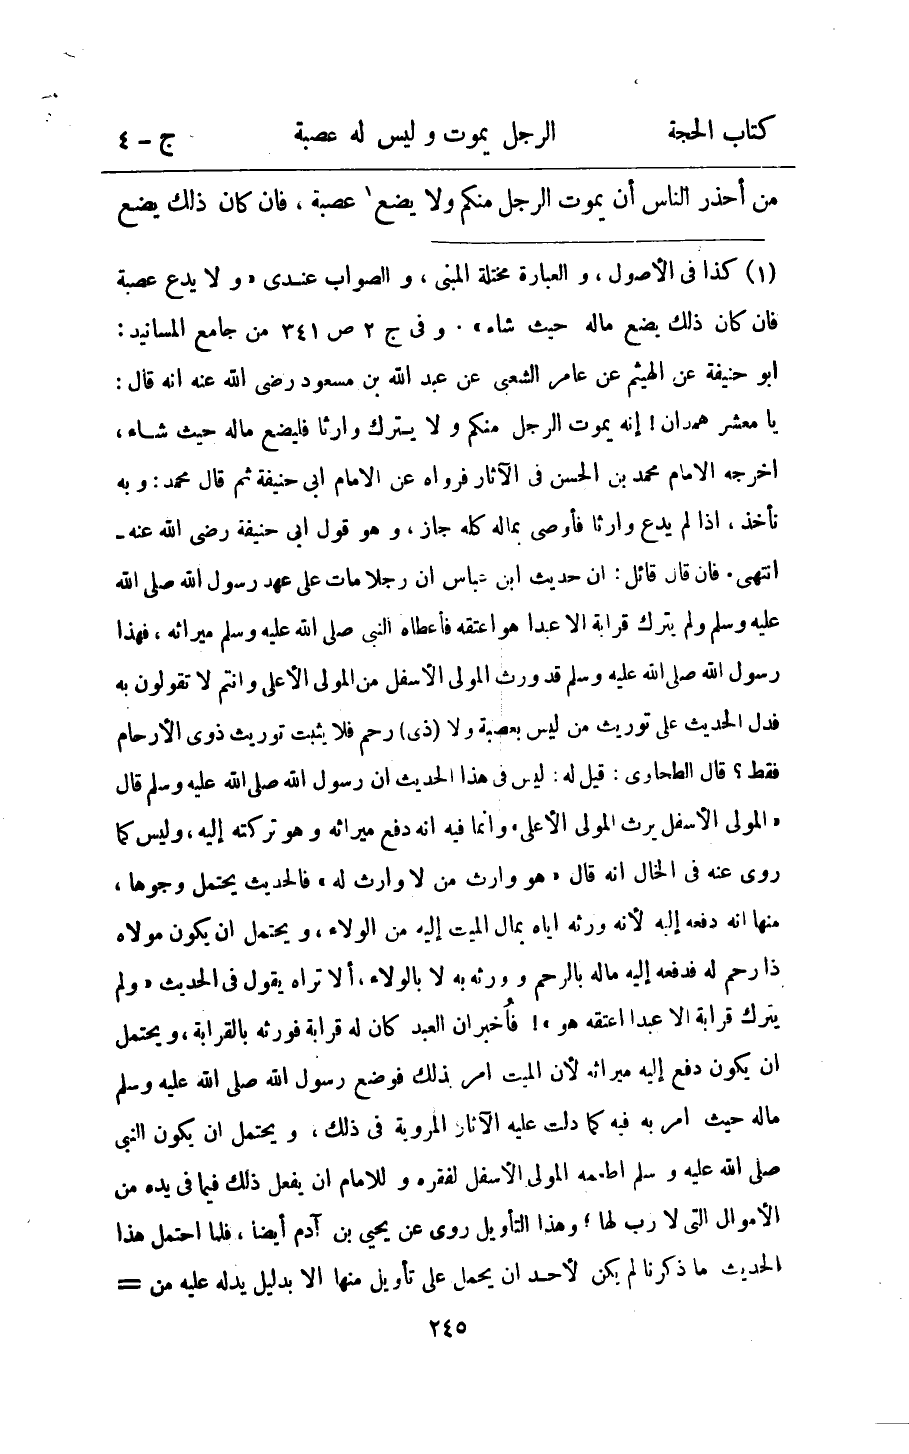 كتاب الحجة الرجل يموت و ليس له عصبة ج - ٤
من أحذر الناس أن يموت الرجل منكم ولا يضع ١ عصبة ، فان كان ذلك يضع
(١) كذا فى الأصول ، و العبارة مختلة المبنى ، و الصواب عندى « و لا يدع عصبة
فان كان ذلك يضع ماله حيث شاء » ٠ و فى ج ٢ ص ٣٤١ من جامع المسانيد :
ابو حنيفة عن الهيثم عن عامر الشعبى عن عبد الله بن مسعود رضى الله عنه انه قال :
يا معشر همدان ! إنه يموت الرجل منكم و لا يترك وارثا فليضع ماله حيث شاء ،
اخرجه الامام محمد بن الحسن فى الآثار فرواه عن الامام ابى حنيفة ثم قال محمد : و به
نأخذ ، اذا لم يدع وارثا فأوصى بماله كله جاز ، و هو قول ابى حنيفة رضى الله عنه ـ
انتهى ٠ فان قال قائل : ان حديث ابن عباس ان رجلا مات على عهد رسول الله صلى الله
عليه وسلم ولم يترك قرابة الا عبدا هو اعتقه فأعطاه النبى صلى الله عليه وسلم ميراثه ، فهذا
رسول الله صلى الله عليه وسلم قد ورث المولى الأسفل من المولى الأعلى وانتم لا تقولون به
فدل الحديث على توريث من ليس بعصبة ولا (ذى) رحم فلا يثبت توريث ذوى الأرحام
فقط ؟ قال الطحاوى : قيل له : ليس فى هذا الحديث ان رسول الله صلى الله عليه وسلم قال
« المولى الأسفل يرث المولى الأعلى » وانما فيه انه دفع ميراثه و هو تركته إليه ، وليس كما
روى عنه فى الخال انه قال « هو وارث من لا وارث له » فالحديث يحتمل وجوها ،
منها انه دفعه إليه لأنه ورثه اياه بمال الميت إليه من الولاء ، و يحتمل ان يكون مولاه
ذا رحم له فدفعه إليه ماله بالرحم و ورثه به لا بالولاء ، ألا تراه يقول فى الحديث « ولم
يترك قرابة الا عبدا اعتقه هو » ! فأُخبر ان العبد كان له قرابة فورثه بالقرابة ، و يحتمل
ان يكون دفع إليه ميراثه لأن الميت امر بذلك فوضع رسول الله صلى الله عليه وسلم
ماله حيث امر به فيه كما دلت عليه الآثار المروية فى ذلك ، و يحتمل ان يكون النبى
صلى الله عليه و سلم اطعمه المولى الأسفل لفقره و للامام ان يفعل ذلك فيما فى يده من
الأموال التى لا رب لها ؛ وهذا التأويل روى عن يحيى بن آدم أيضا ، فلما احتمل هذا
الحديث ما ذكرنا لم يكن لأحد ان يحمل على تأويل منها الا بدليل يدله عليه من =
٢٤٥